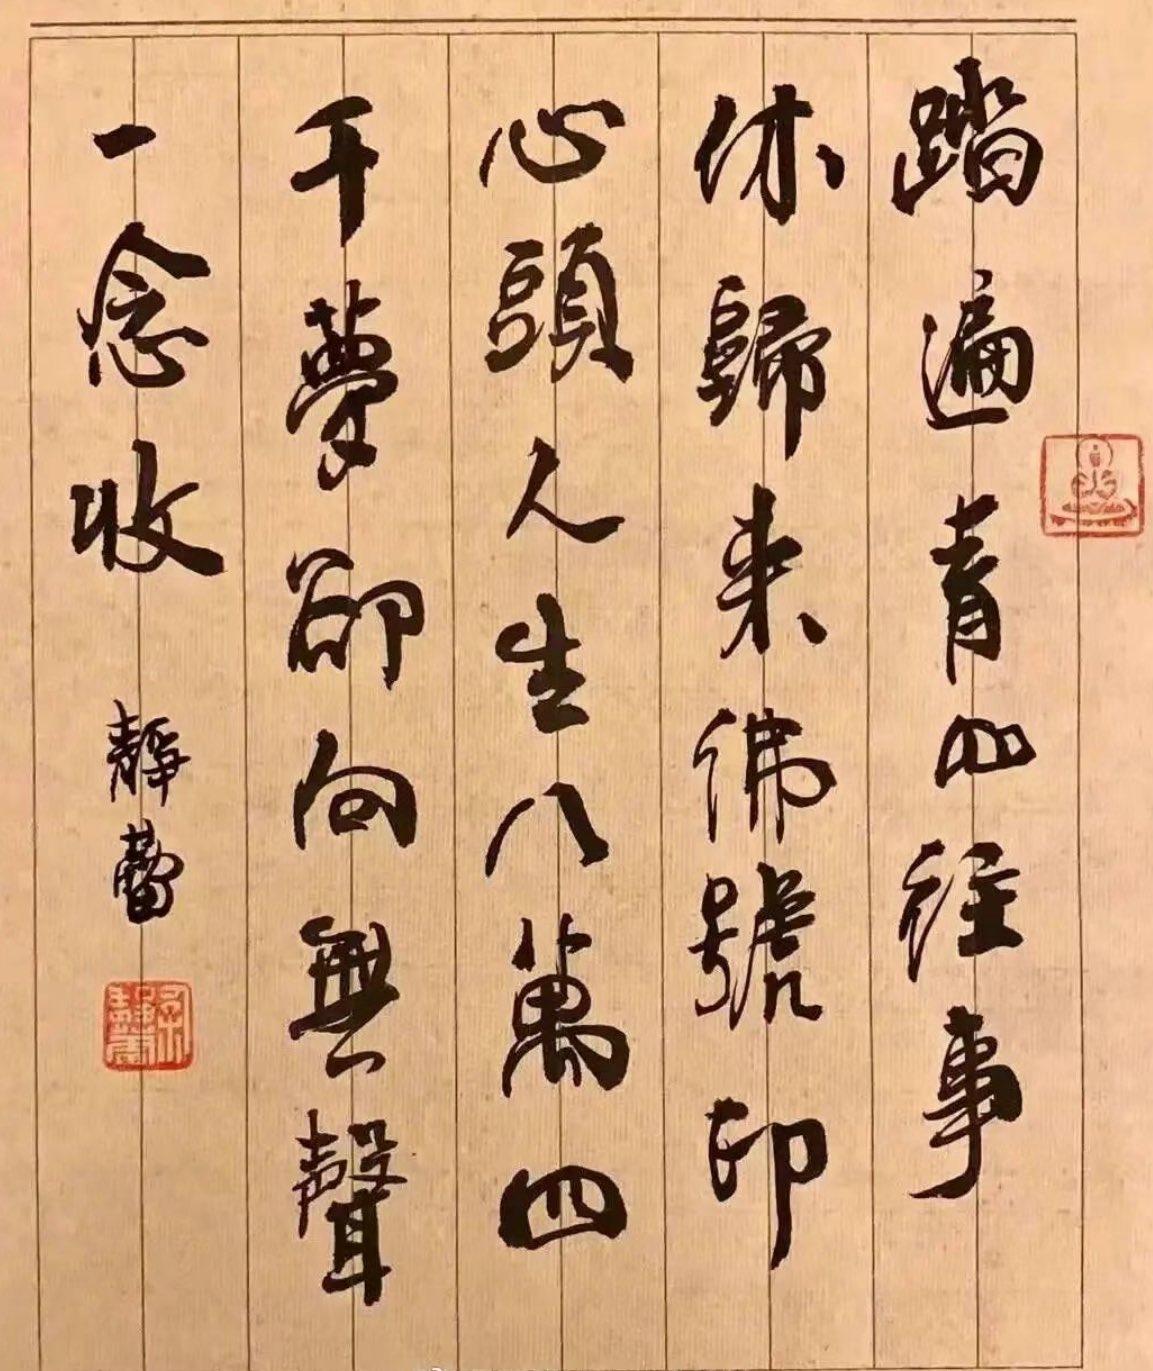 踏遍青山往事
休歸来佛號印
心頭人生八萬四
千夢卻向無聲
一念收
靜蕾